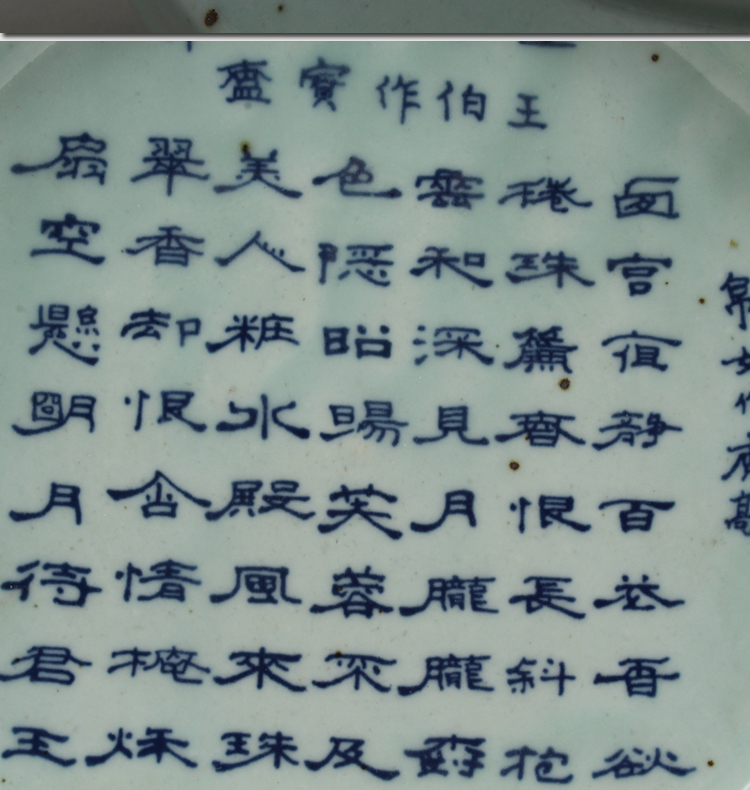 王伯作寶齍
西宮夜靜百花香欲
捲珠簾春恨長斜抱
雲和深見月朧朧樹
色隱昭陽芙蓉不及
美人粧水殿風來珠
翠香却恨含情掩秋
扇空懸明月待君王